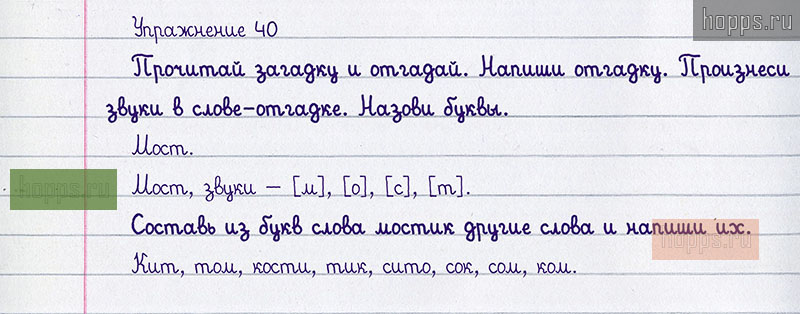 hopps.ru
Упражнение 40
Прочитай загадку и отгадай. Напиши отгадку. Произнеси
звуки в слове-отгадке. Назови буквы.
Мост.
hopps.ru
Мост, звуки – [м], [о], [с], [т].
Составь из букв слова мостик другие слова и напиши их.
hopps.ru
Кит, том, кости, тик, сито, сок, сом, ком.